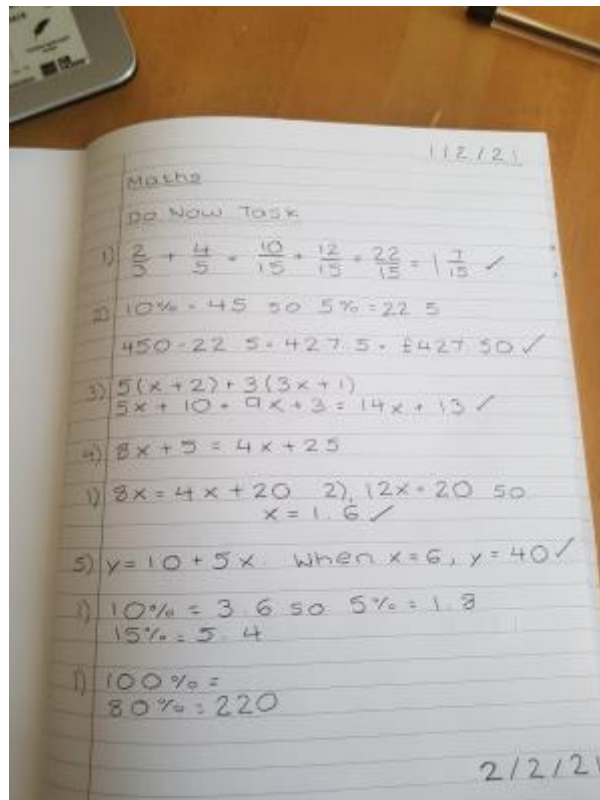 1/2/21
Maths
Do Now Task
1) 2/3 + 4/5 = 10/15 + 12/15 = 22/15 = 1 7/15 ✓
2) 10% = 45 so 5% = 22.5
450 - 22.5 = 427.5 = £427.50 ✓
3) 5(x + 2) + 3(3x + 1)
5x + 10 + 9x + 3 = 14x + 13 ✓
4) 8x + 5 = 4x + 25
1) 8x = 4x + 20 2) 12x = 20 so
x = 1.6 ✓
5) y = 10 + 5x. When x = 6, y = 40 ✓
1) 10% = 3.6 so 5% = 1.8
15% = 5.4
1) 100% =
80% = 220
2/2/21